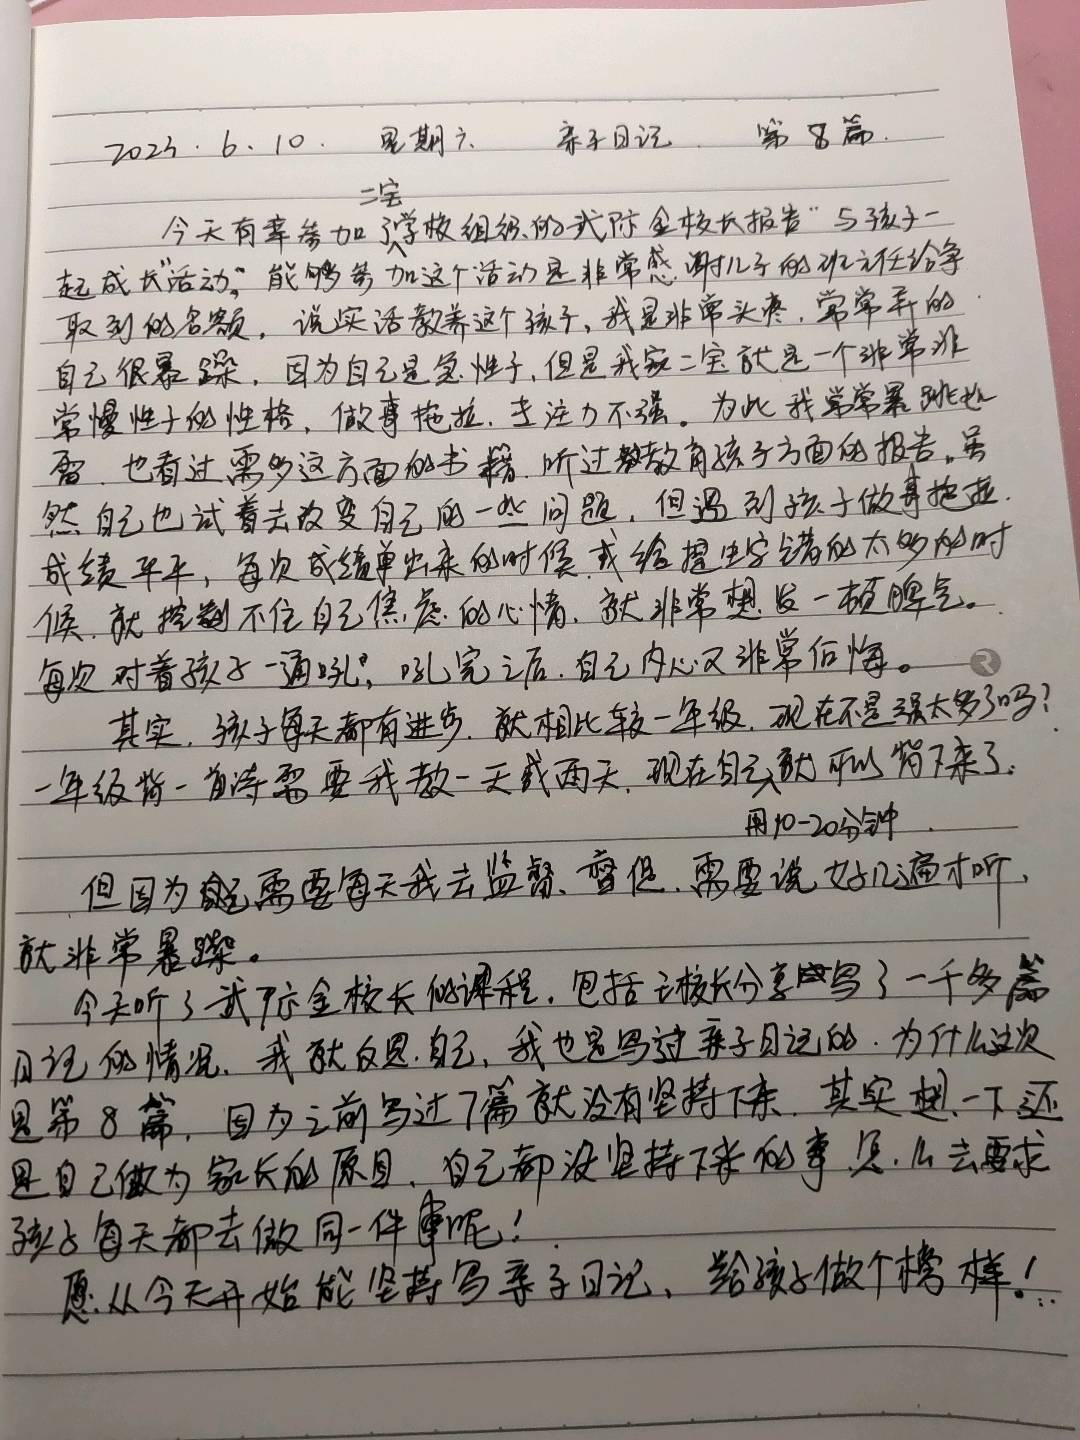 2023.6.10. 星期六 亲子日记 第8篇.
二宝
今天有幸参加了学校组织的武际金校长报告"与孩子一
起成长"活动,能够参加这个活动是非常感谢儿子的班主任给争
取到的名额。说实话教养这个孩子,我是非常头疼,常常弄的
自己很暴躁。因为自己是急性子,但是我家二宝就是一个非常非
常慢性子的性格,做事拖拉,专注力不强。为此我常常暴跳如
雷,也看过需多这方面的书籍,听过教育孩子方面的报告。虽
然自己也试着去改变自己的一些问题,但遇到孩子做事拖拉.
成绩平平,每次成绩单出来的时候,或给提生字错的太多的时
候,就控制不住自己焦虑的心情,就非常想发一顿脾气。
每次对着孩子一通吼,吼完之后,自己内心又非常后悔。
其实,孩子每天都有进步,就相比较一年级,现在不是强太多了吗?
一年级背一首诗需要我教一天或两天,现在自己就可以背下来了.
用10-20分钟.
但因为需要每天我去监督、督促,需要说好几遍才听,
就非常暴躁。
今天听了武际金校长的课程,包括校长分享写了一千多篇
日记的情况,我就反思自己,我也是写过亲子日记的,为什么这次
是第8篇,因为之前写过7篇就没有坚持下来,其实想一下还
是自己做为家长的原因,自己都没坚持下来的事怎么去要求
孩子每天都去做同一件事呢!
愿从今天开始能坚持写亲子日记,给孩子做个榜样!..